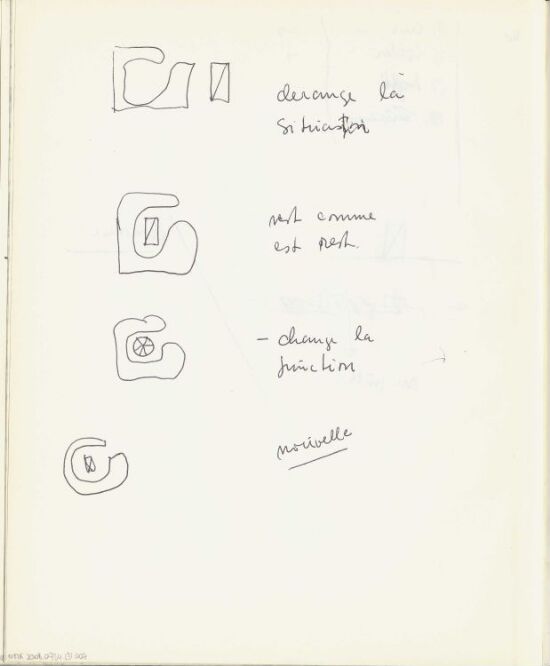 derange là
situation
rest comme
est rest.
- change la
function
nouvelle